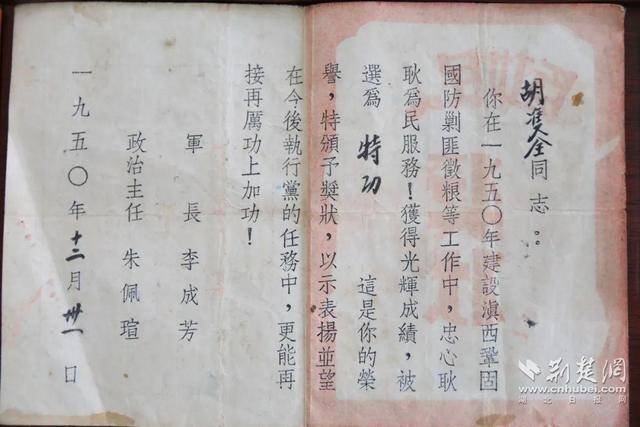 胡双全同志：
你在一九五〇年建設滇西鞏固
國防剿匪徵粮等工作中，忠心耿
耿為民服務！獲得光輝成績，被
選為 特功 這是你的榮
譽，特頒予獎狀，以示表揚並望
在今後執行黨的任務中，更能再
接再厲功上加功！
軍長 李成芳
政治主任 朱佩瑄
一九五〇年十二月卅一日
荆楚網
www.cnhubei.com
湖北日报网